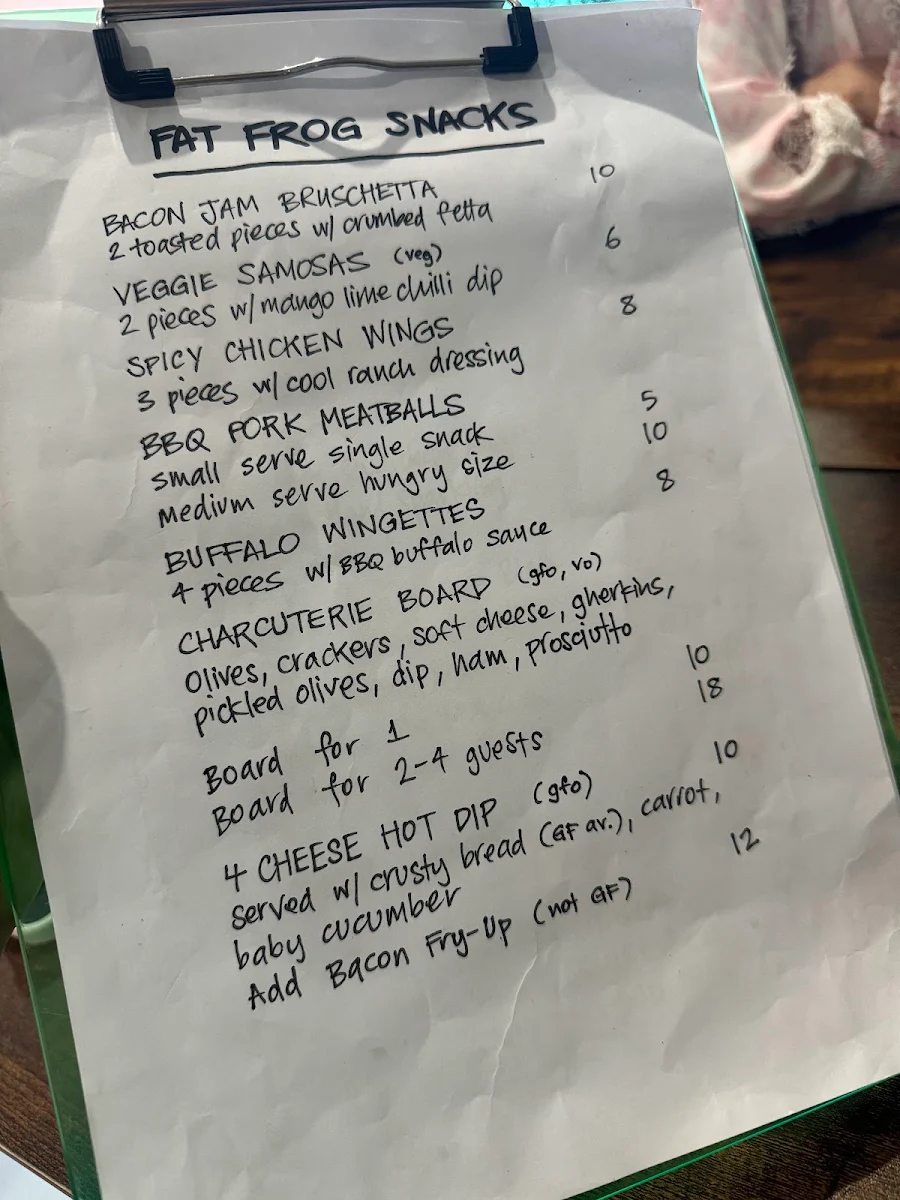 FAT FROG SNACKS
BACON JAM BRUSCHETTA 10
2 toasted pieces w/ crumbed fetta
VEGGIE SAMOSAS (veg) 6
2 pieces w/ mango lime chilli dip
SPICY CHICKEN WINGS 8
3 pieces w/ cool ranch dressing
BBQ PORK MEATBALLS
small serve single snack 5
medium serve hungry size 10
BUFFALO WINGETTES 8
4 pieces w/ BBQ buffalo sauce
CHARCUTERIE BOARD (gfo, vo)
Olives, crackers, soft cheese, gherkins,
pickled olives, dip, ham, prosciutto
Board for 1 10
Board for 2-4 guests 18
4 CHEESE HOT DIP (gfo) 10
served w/ crusty bread (GF av.), carrot,
baby cucumber
Add Bacon Fry-Up (not GF) 12